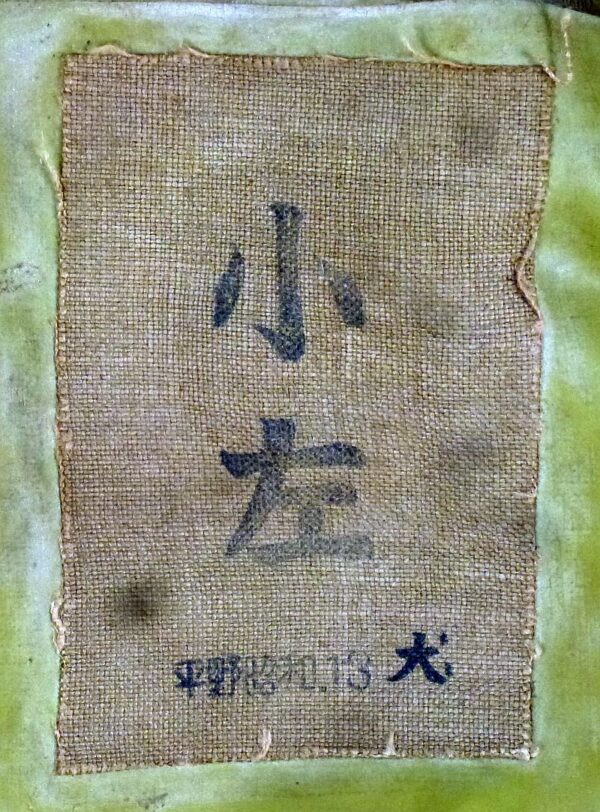 小
左
平野昭和.13 犬